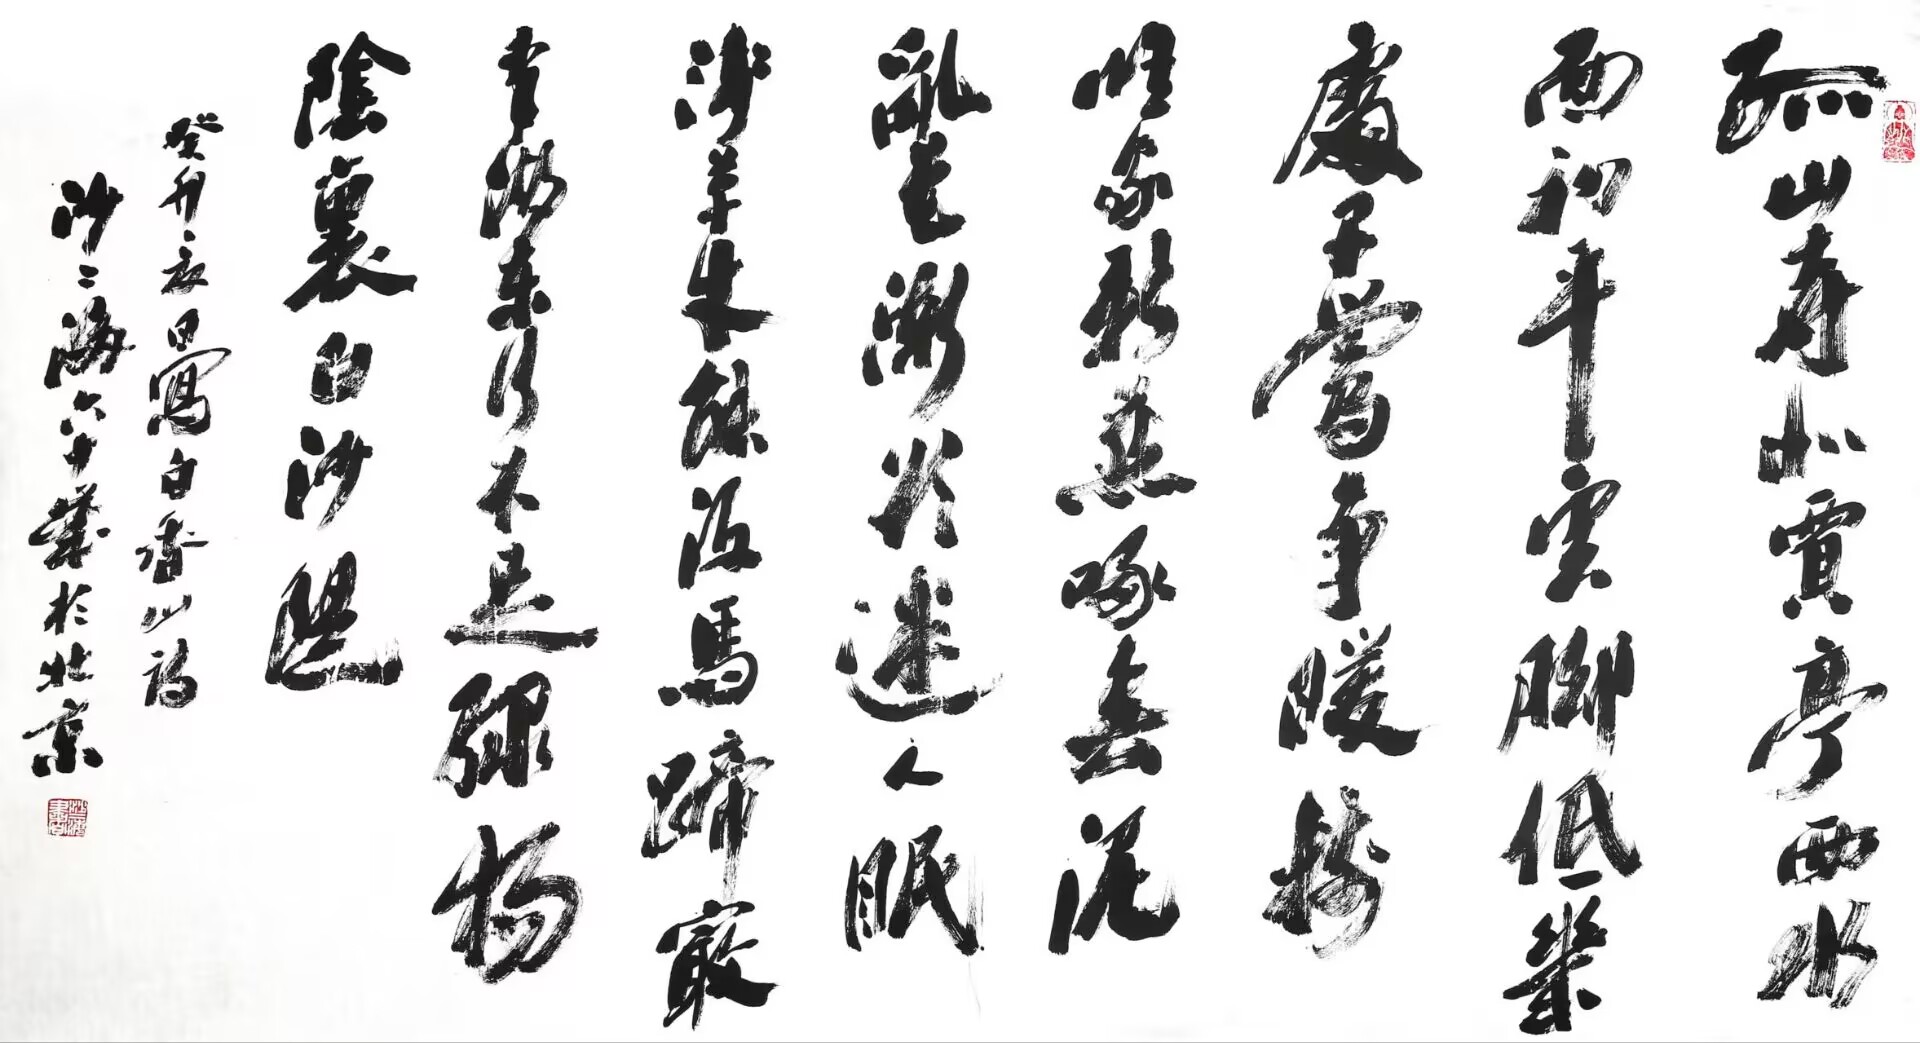 孤山寺北賈亭西水
面初平雲腳低幾
處早鶯爭暖樹
誰家新燕啄春泥
亂花漸欲迷人眼
淺草才能沒馬蹄最
愛湖東行不足綠楊
陰裏白沙堤
癸卯日寫白香山詩
沙海六十於北京